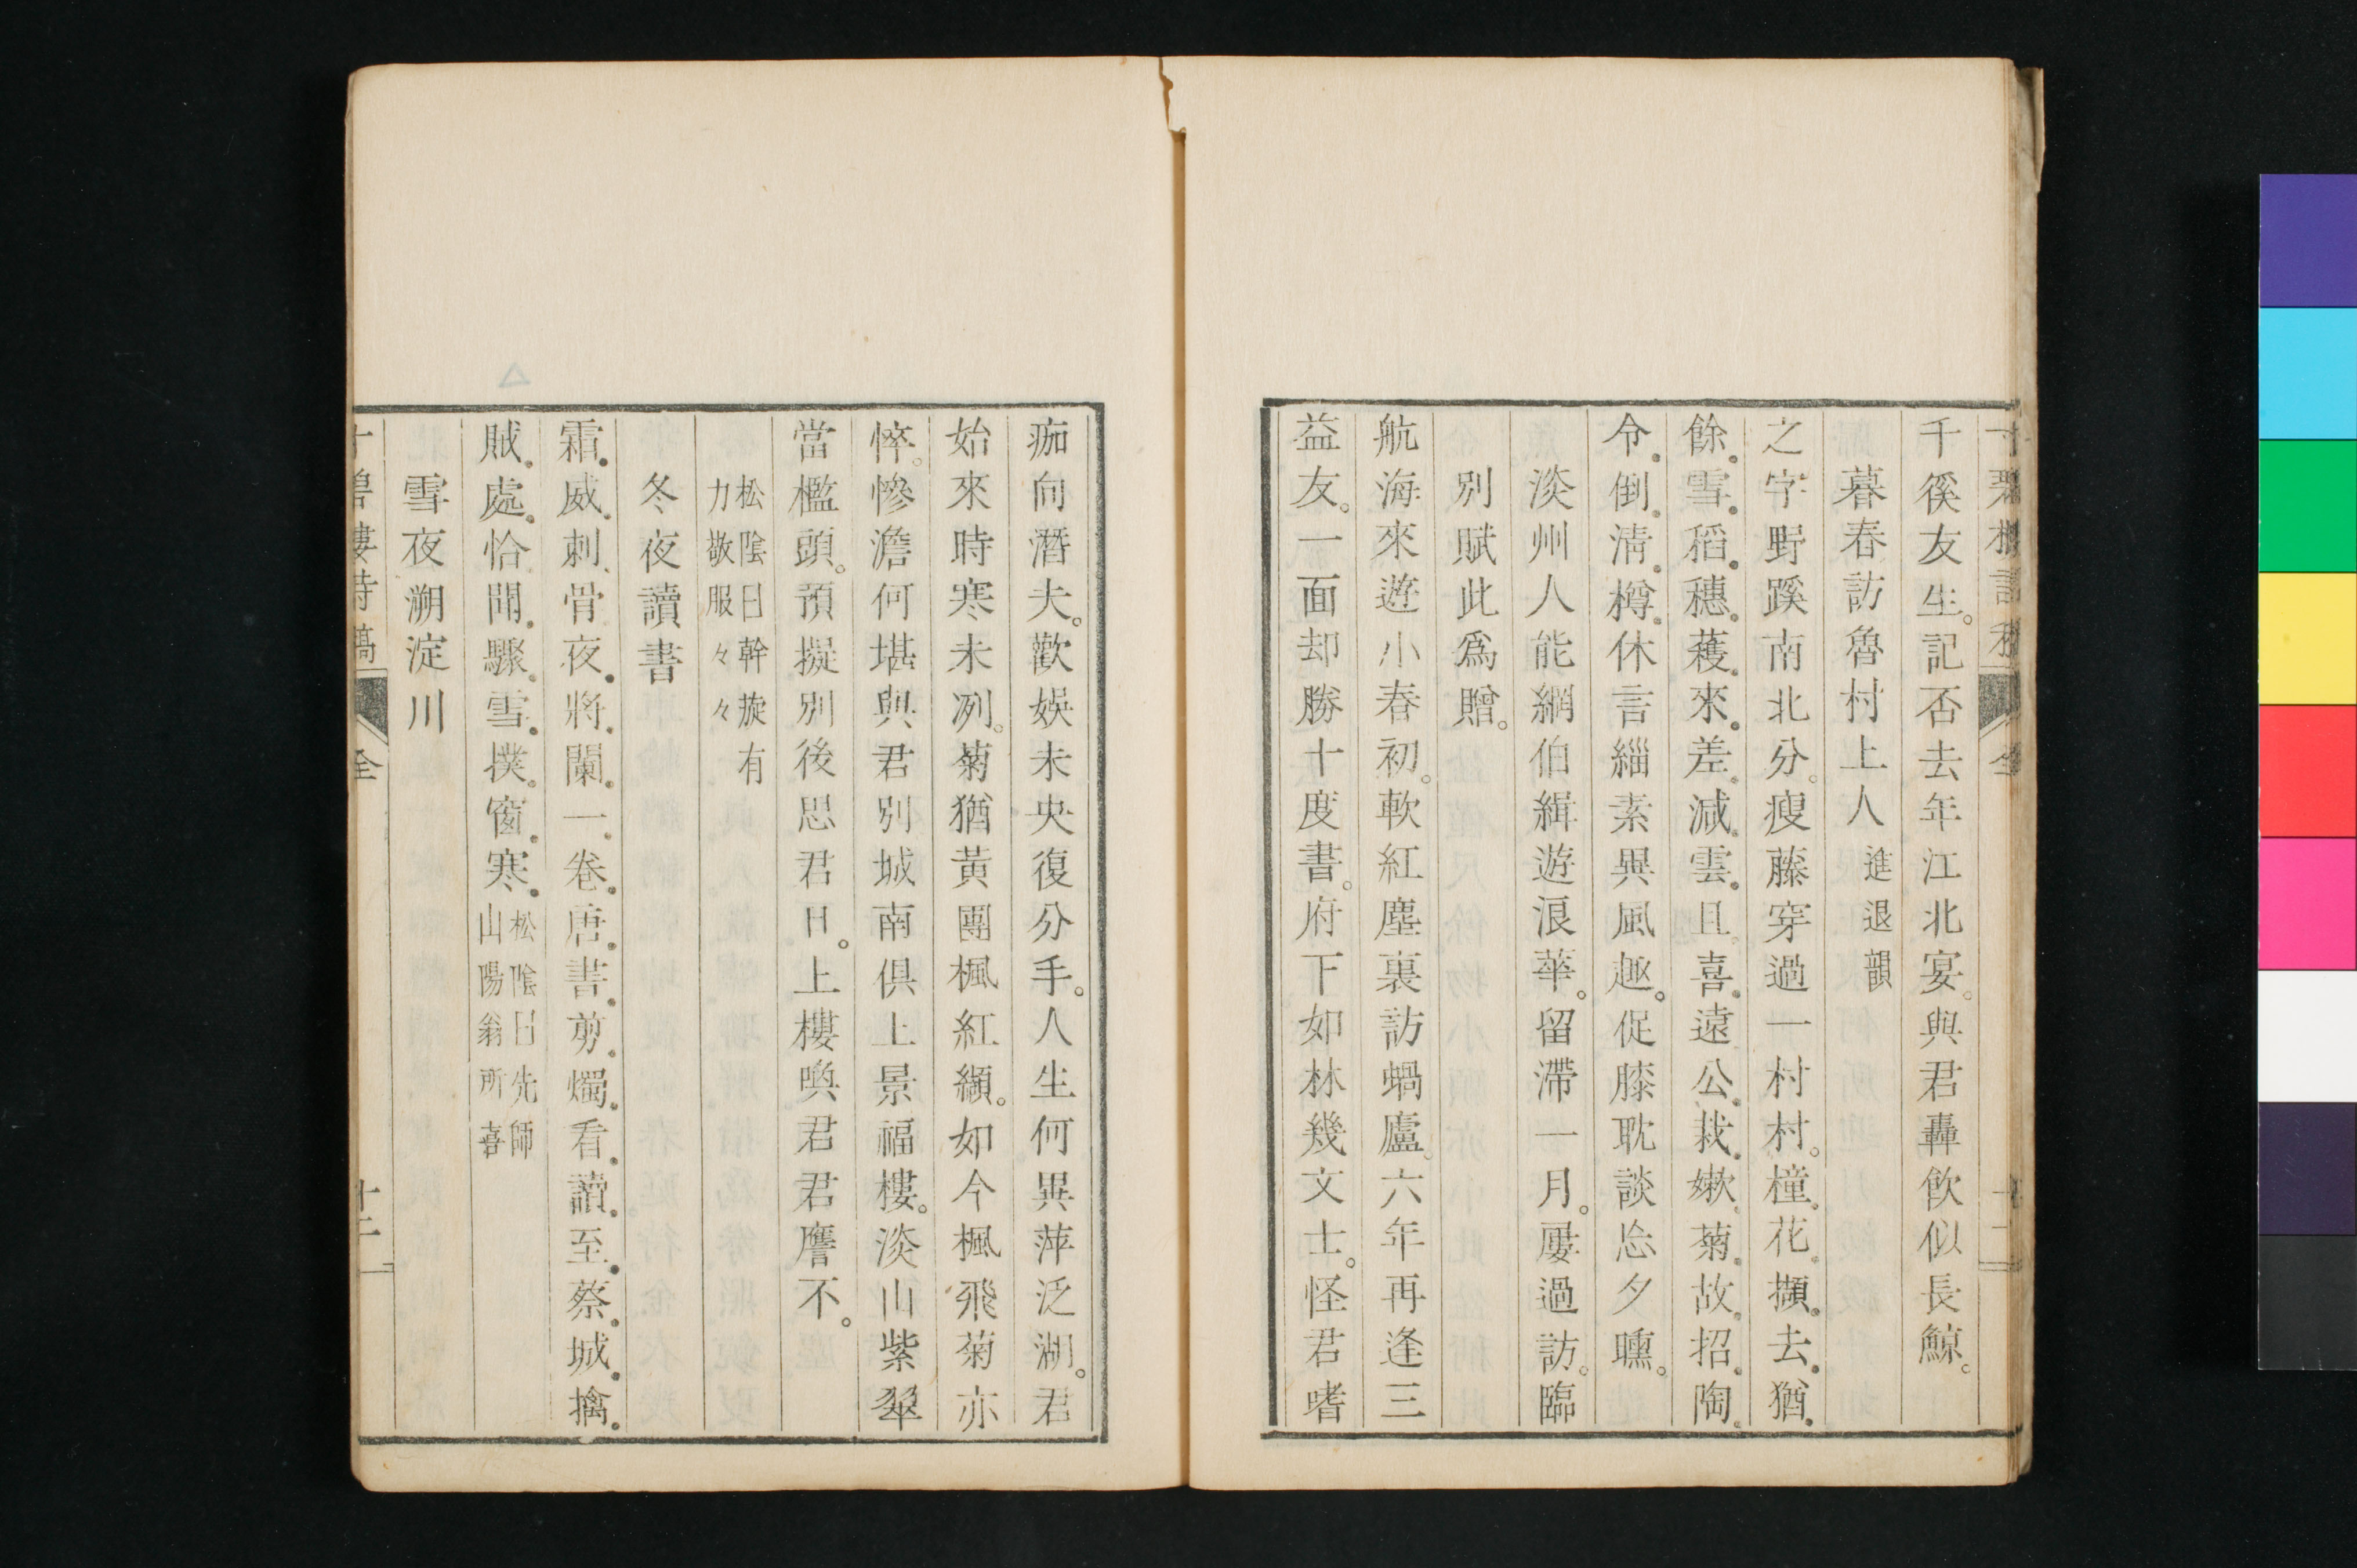 千徯友生。記否去年江北宴。與君轟飲似長鯨。
暮春訪魯村上人 進退韻
之字野蹊南北分。瘦藤穿過一村村。橦花擷去猶
餘雪。稻穗穫來差減雲。且喜遠公栽嫩菊。故招陶
令倒清樽。休言緇素異風趣。促膝耽談忘夕曛。
淡州人能網伯緝遊浪華。留滯一月。屢過訪。臨
別賦此爲贈。
航海來遊小春初。軟紅塵裏訪蝸廬。六年再逢三
益友。一面却勝十度書。府下如林幾文士。怪君嗜
痂向潛夫。歡娛未央復分手。人生何異萍泛湖。君
始來時寒未冽。菊猶黃團楓紅纈。如今楓飛菊亦
悴。慘澹何堪與君別。城南俱上景福樓。淡山紫翠
當檻頭。預擬別後思君日。上樓喚君君譍不。
松陰曰幹旋有
力敬服々々
冬夜讀書
霜威刺骨夜將闌。一卷唐書剪燭看。讀至蔡城擒
賊處。恰聞驟雪撲窗寒。
松陰曰先師
山陽翁所喜
雪夜溯淀川
全
十二